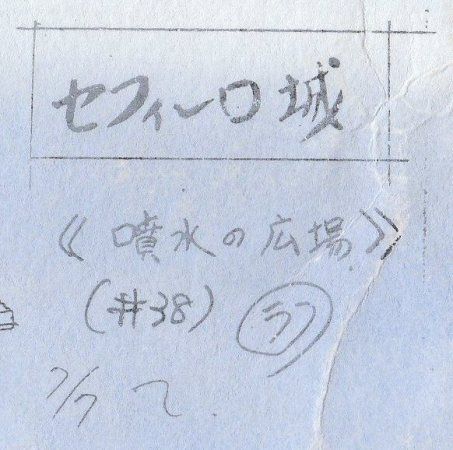 セフィーロ城
《噴水の広場》
(#38) ラフ
7/7